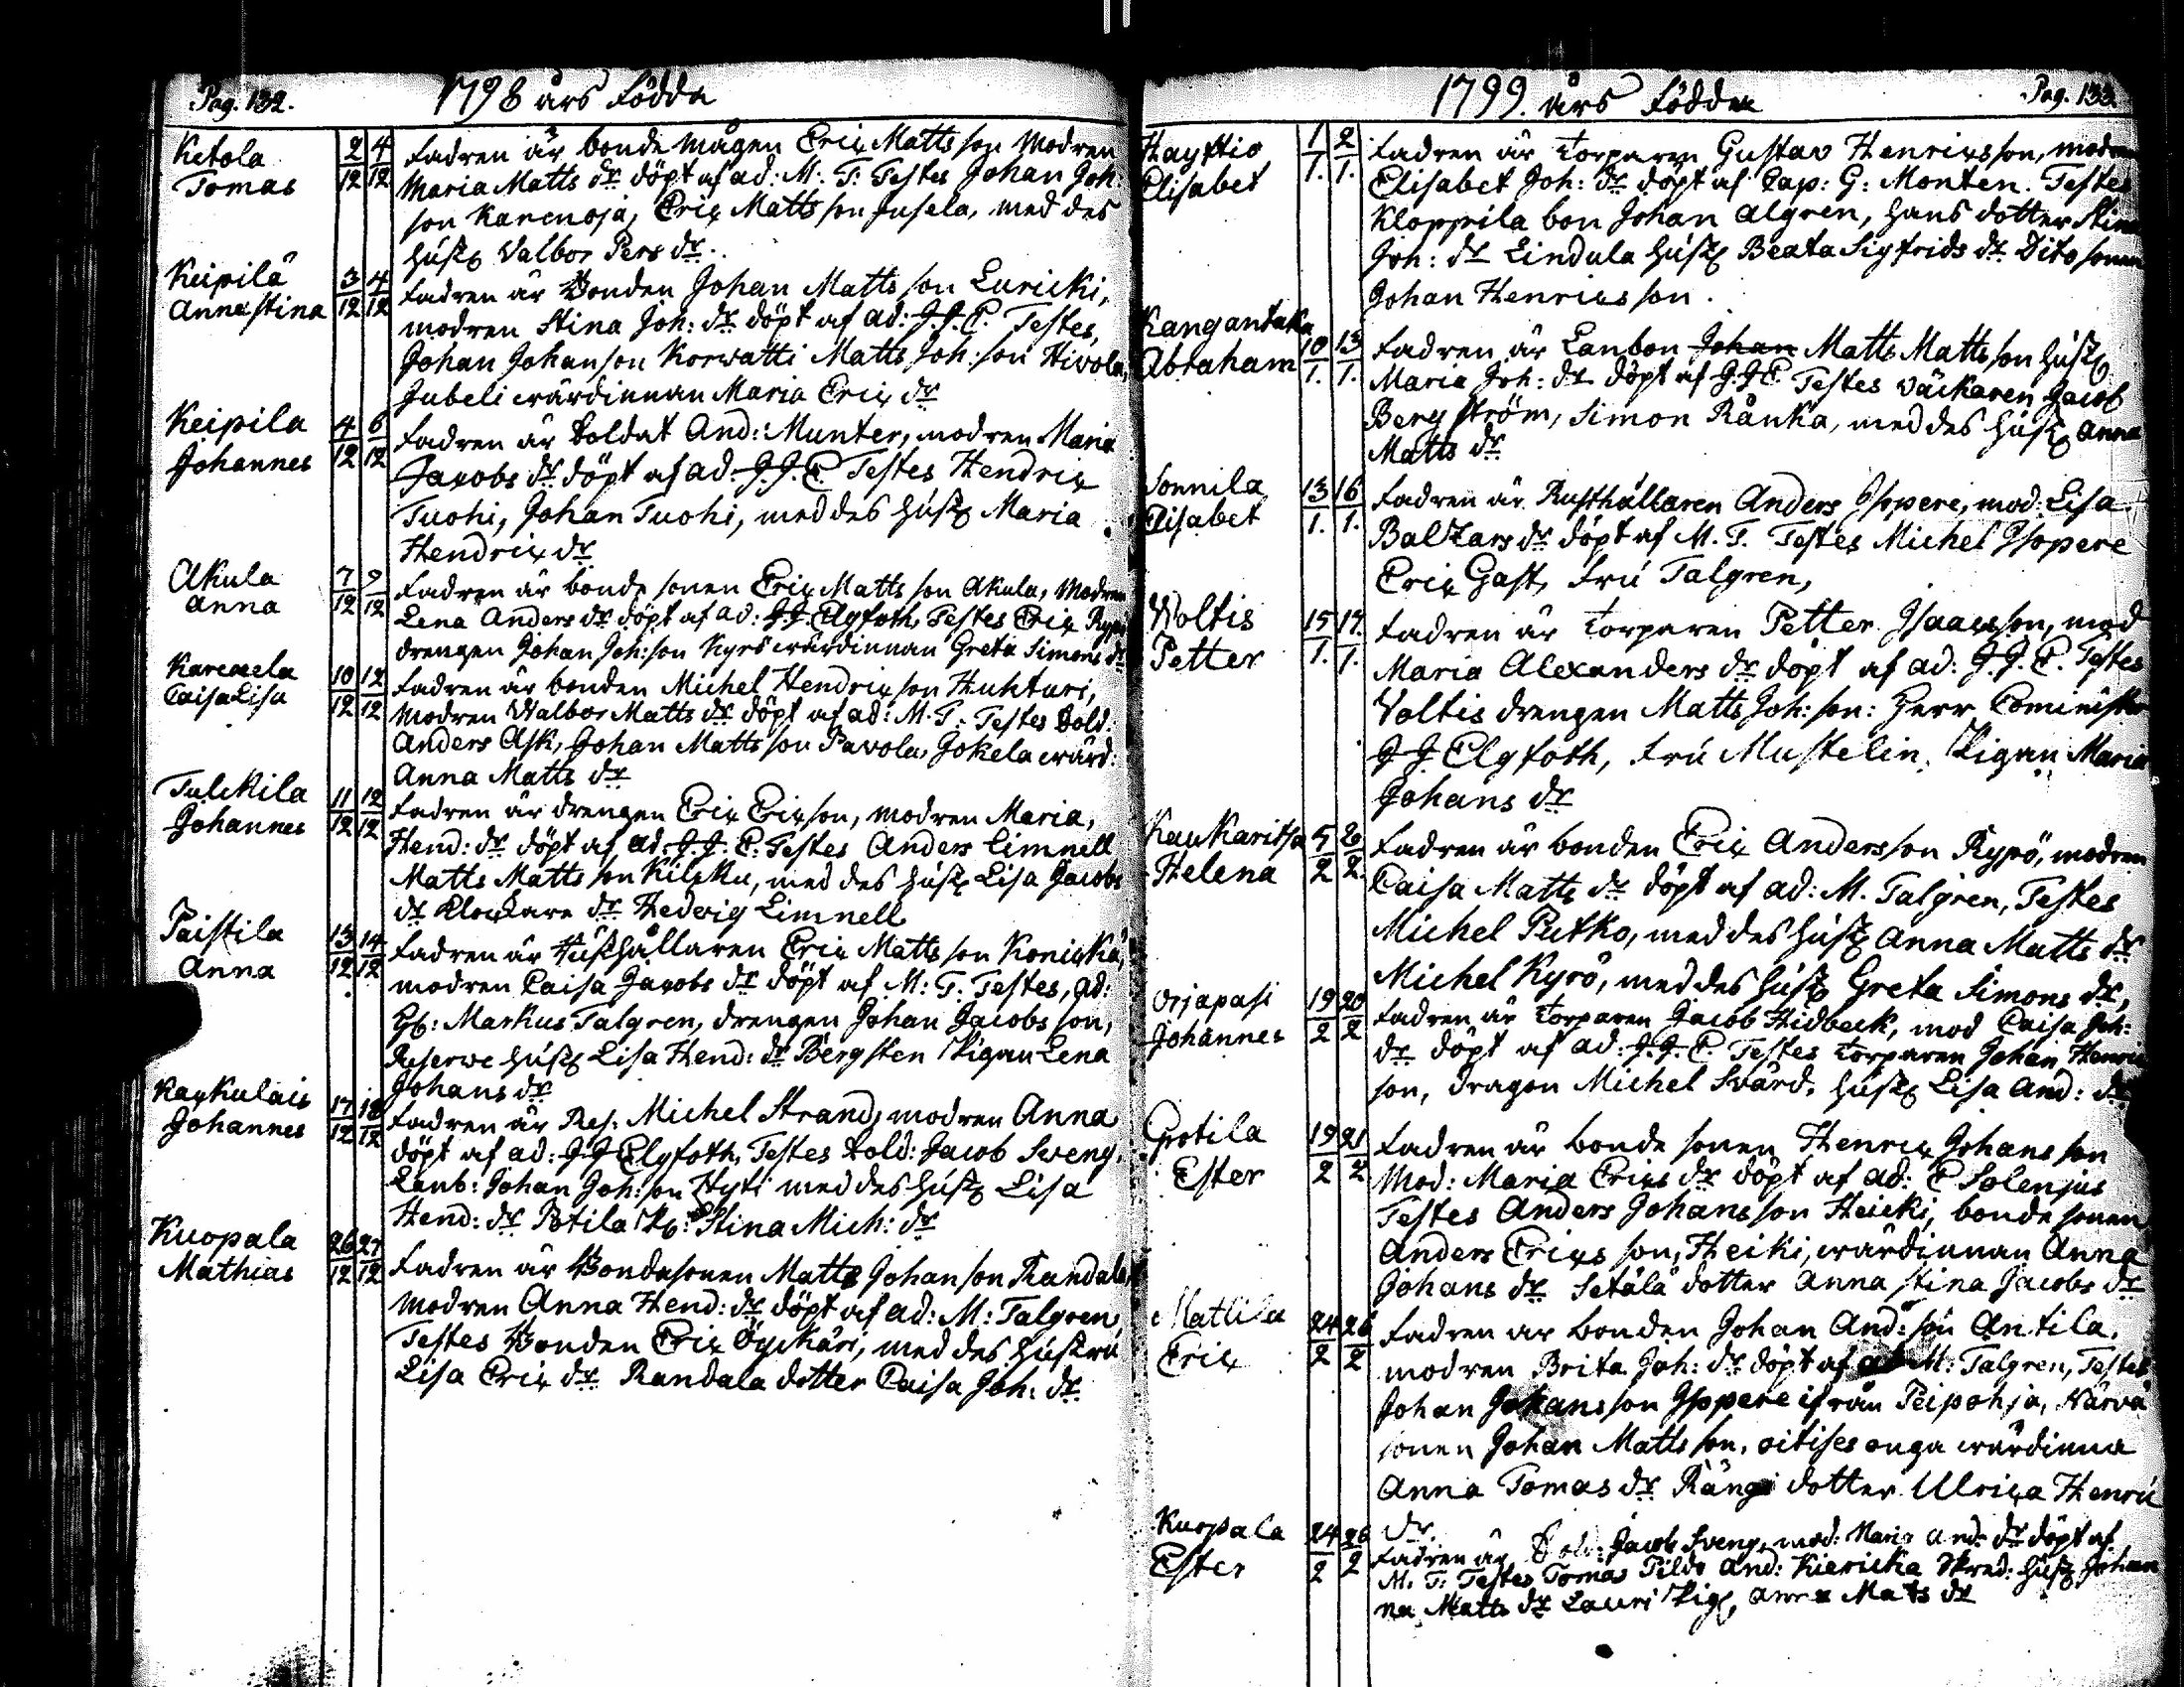 Pag. 132.
1798 års Födda
Ketola
Tomas
2/12 4/12
Fadren är bonde mågen Eric Matts son Modren
Maria Matts dr döpt af ad: M: T: Testes Johan Joh:
son Karenoja, Eric Matts son Jusela, med des
hust Valbor Pers dr.
Keipilä
Anna Stina
3/12 4/12
Fadren är Bonden Johan Matts son Luricki,
modren Stina Joh: dr döpt af ad: J. J. E. Testes,
Johan Johan son Korwatti Matts Joh: son Hivola,
Jubeli wärdinnan Maria Eric dr
Keipila
Johannes
4/12 6/12
Fadren är Soldat And: Munter, modren Maria
Jacobs dr döpt af ad J. J. E. Testes Hendric
Tuohi, Johan Tuohi, med des hust Maria
Hendric dr
Akula
Anna
7/12 9/12
Fadren är bonde sonen Eric Matts son Akula, Modren
Lena Anders dr döpt af ad: J. J. Elgfoth, Testes Eric Rypö
drengen Johan Joh: son Kyrö wärdinnan Greta Simons dr
Karenela
Caisa Lisa
10/12 12/12
Fadren är bonden Michel Hendric son Huhturi,
Modren Walbor Matts dr döpt af ad: M. T. Testes Sold:
Anders Ask, Johan Matts son Pavola, Jokela wärd:
Anna Matts dr
Tulckila
Johannes
11/12 12/12
Fadren är drengen Eric Ericson, modren Maria,
Hend: dr döpt af ad: J. J. E: Testes Anders Limnell
Matts Matts son Kilcku, med des hust Lisa Jacobs
dr Klockare dr Hedvig Limnell
Paistila
Anna
13/12 14/12
Fadren är Rusthållaren Eric Matts son Konickä,
modren Caisa Jacobs dr döpt af M: T: Testes, ad:
H: Markus Talgren, drengen Johan Jacobs son,
Reserwe hust Lisa Hend: dr Bergsten Pigan Lena
Johans dr
Kaukulais
Johannes
17/12 18/12
Fadren är Res: Michel Strand, modren Anna
döpt af ad: J J Elgfoth, Testes Sold: Jacob Sveng,
Lanb: Johan Joh: son Hyti med des hust Lisa
Hend: dr Potila P: Stina Mich: dr
Kuopala
Mathias
26/12 27/12
Fadren är Bondesonen Matts Johan son Randala,
modren Anna Hend: dr döpt af ad: M: Talgren
Testes Bonden Eric Öyckäri, med des hustru
Lisa Eric dr Randala dotter Caisa Joh: dr
1799. års Födda
Pag. 133.
Hayktio
Elisabet
1/1. 2/1.
Fadren är Torparen Gustav Henricsson, modren
Elisabet Joh: dr döpt af Cap: G: Monten. Testes
Kloppila bon Johan Algren, hans dotter Stina
Joh: dr Lindula hust Beata Sigfrids dr Dito sonen
Johan Henricsson.
Kangantaka
Abraham
10/1. 13/1.
Fadren är Lanbon Johan Matts Matts son hust
Maria Joh: dr döpt af J. J. E. Testes Väckaren Jacob
Bergström, Simon Rånka, med des hust Anna
Matts dr
Sonnila
Elisabet
13/1. 16/1.
Fadren är Rusthållaren Anders Yppere, mod: Lisa
Baltzars dr döpt af M. T. Testes Michel Yppere
Eric Gast, Fru Talgren,
Woltis
Petter
15/1. 17/1.
Fadren är Torparen Petter Isacsson, mod
Maria Alexanders dr döpt af ad: J. J. E. Testes
Voltis drengen Matts Joh: son: Herr Cominister
J J Elgfoth, Fru Mustelin, Pigan Maria
Johans dr
Kaukaritsa
Helena
5/2 20/2.
Fadren är bonden Eric Andersson Rypö, modren
Caisa Matts dr döpt af ad: M. Talgren, Testes
Michel Putko, med des hust Anna Matts dr
Michel Kyrö, med des hust Greta Simons dr,
Orjapasi
Johannes
19/2 20/2
Fadren är Torparen Jacob Hidbeck, mod Caisa Joh:
dr döpt af ad: J. J. E. Testes Torparen Johan Henric
son, dragon Michel Svärd, hust Lisa And: dr
Ester
19/2 21/2
Fadren är bonde sonen Henric Johans son
Mod: Maria Erics dr döpt af ad: E Solenius
Testes Anders Johans son Heicki, bonde sonen
Anders Erics son, Heiki, wärdinnan Anna
Johans dr Setälä dotter Anna Stina Jacobs dr
Mattila
Eric
24/2 26/2
Fadren är bonden Johan And: son Antila.
modren Brita Joh: dr döpt af M: Talgren, Testes
Johan Johansson Yppere ifrån Peipohja, Närvä
sonen Johan Matts son, oitises onga wärdinna
Anna Tomas dr Rängi dotter Ulrica Henric
dr.
Kuopala
Ester
24/2 26/2
Fadren är Sold: Jacob Sveng, mod: Maria And: dr döpt af
M. T: Testes Tomas Pildo And: Kiericka Skred: hust Johan
na Matts dr Lauri Pig, Anna Mats dr